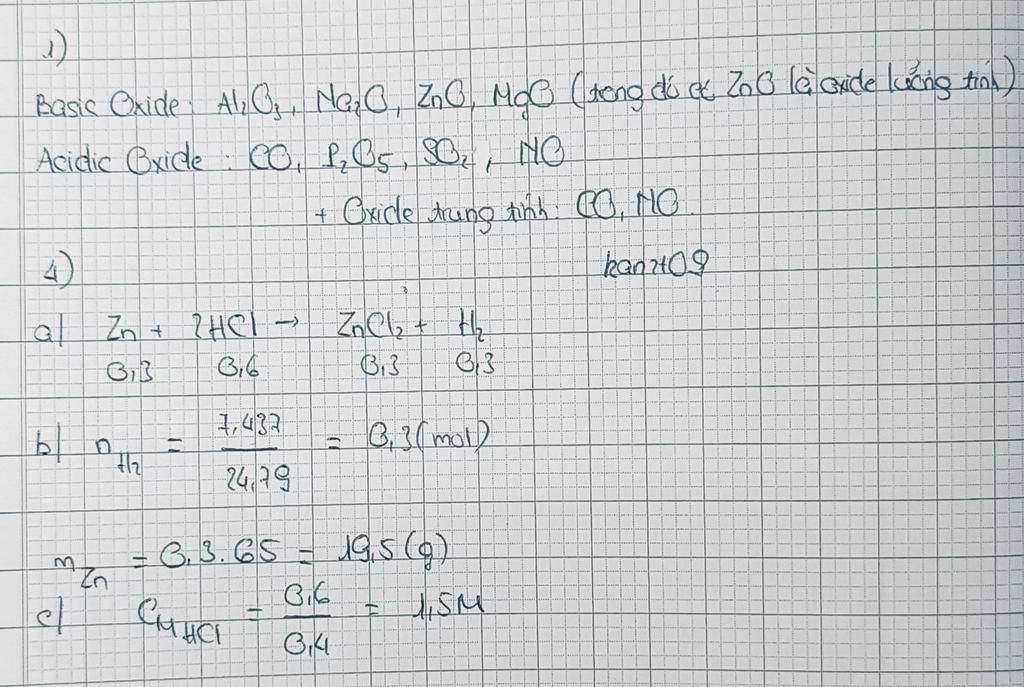 1)
Basic Oxide: Al₂O₃, Na₂O, ZnO, MgO (trong đó có ZnO là oxide lưỡng tính)
Acidic Oxide: CO, P₂O₅, SO₂, NO
+ Oxide trung tính: CO, NO
4) kanzt09
a) Zn + 2HCl → ZnCl₂ + H₂
0,3 0,6 0,3 0,3
b) n H₂ = 7,437 / 24,79 = 0,3 (mol)
m Zn = 0,3.65 = 19,5 (g)
c) CM HCl = 0,6 / 0,4 = 1,5M